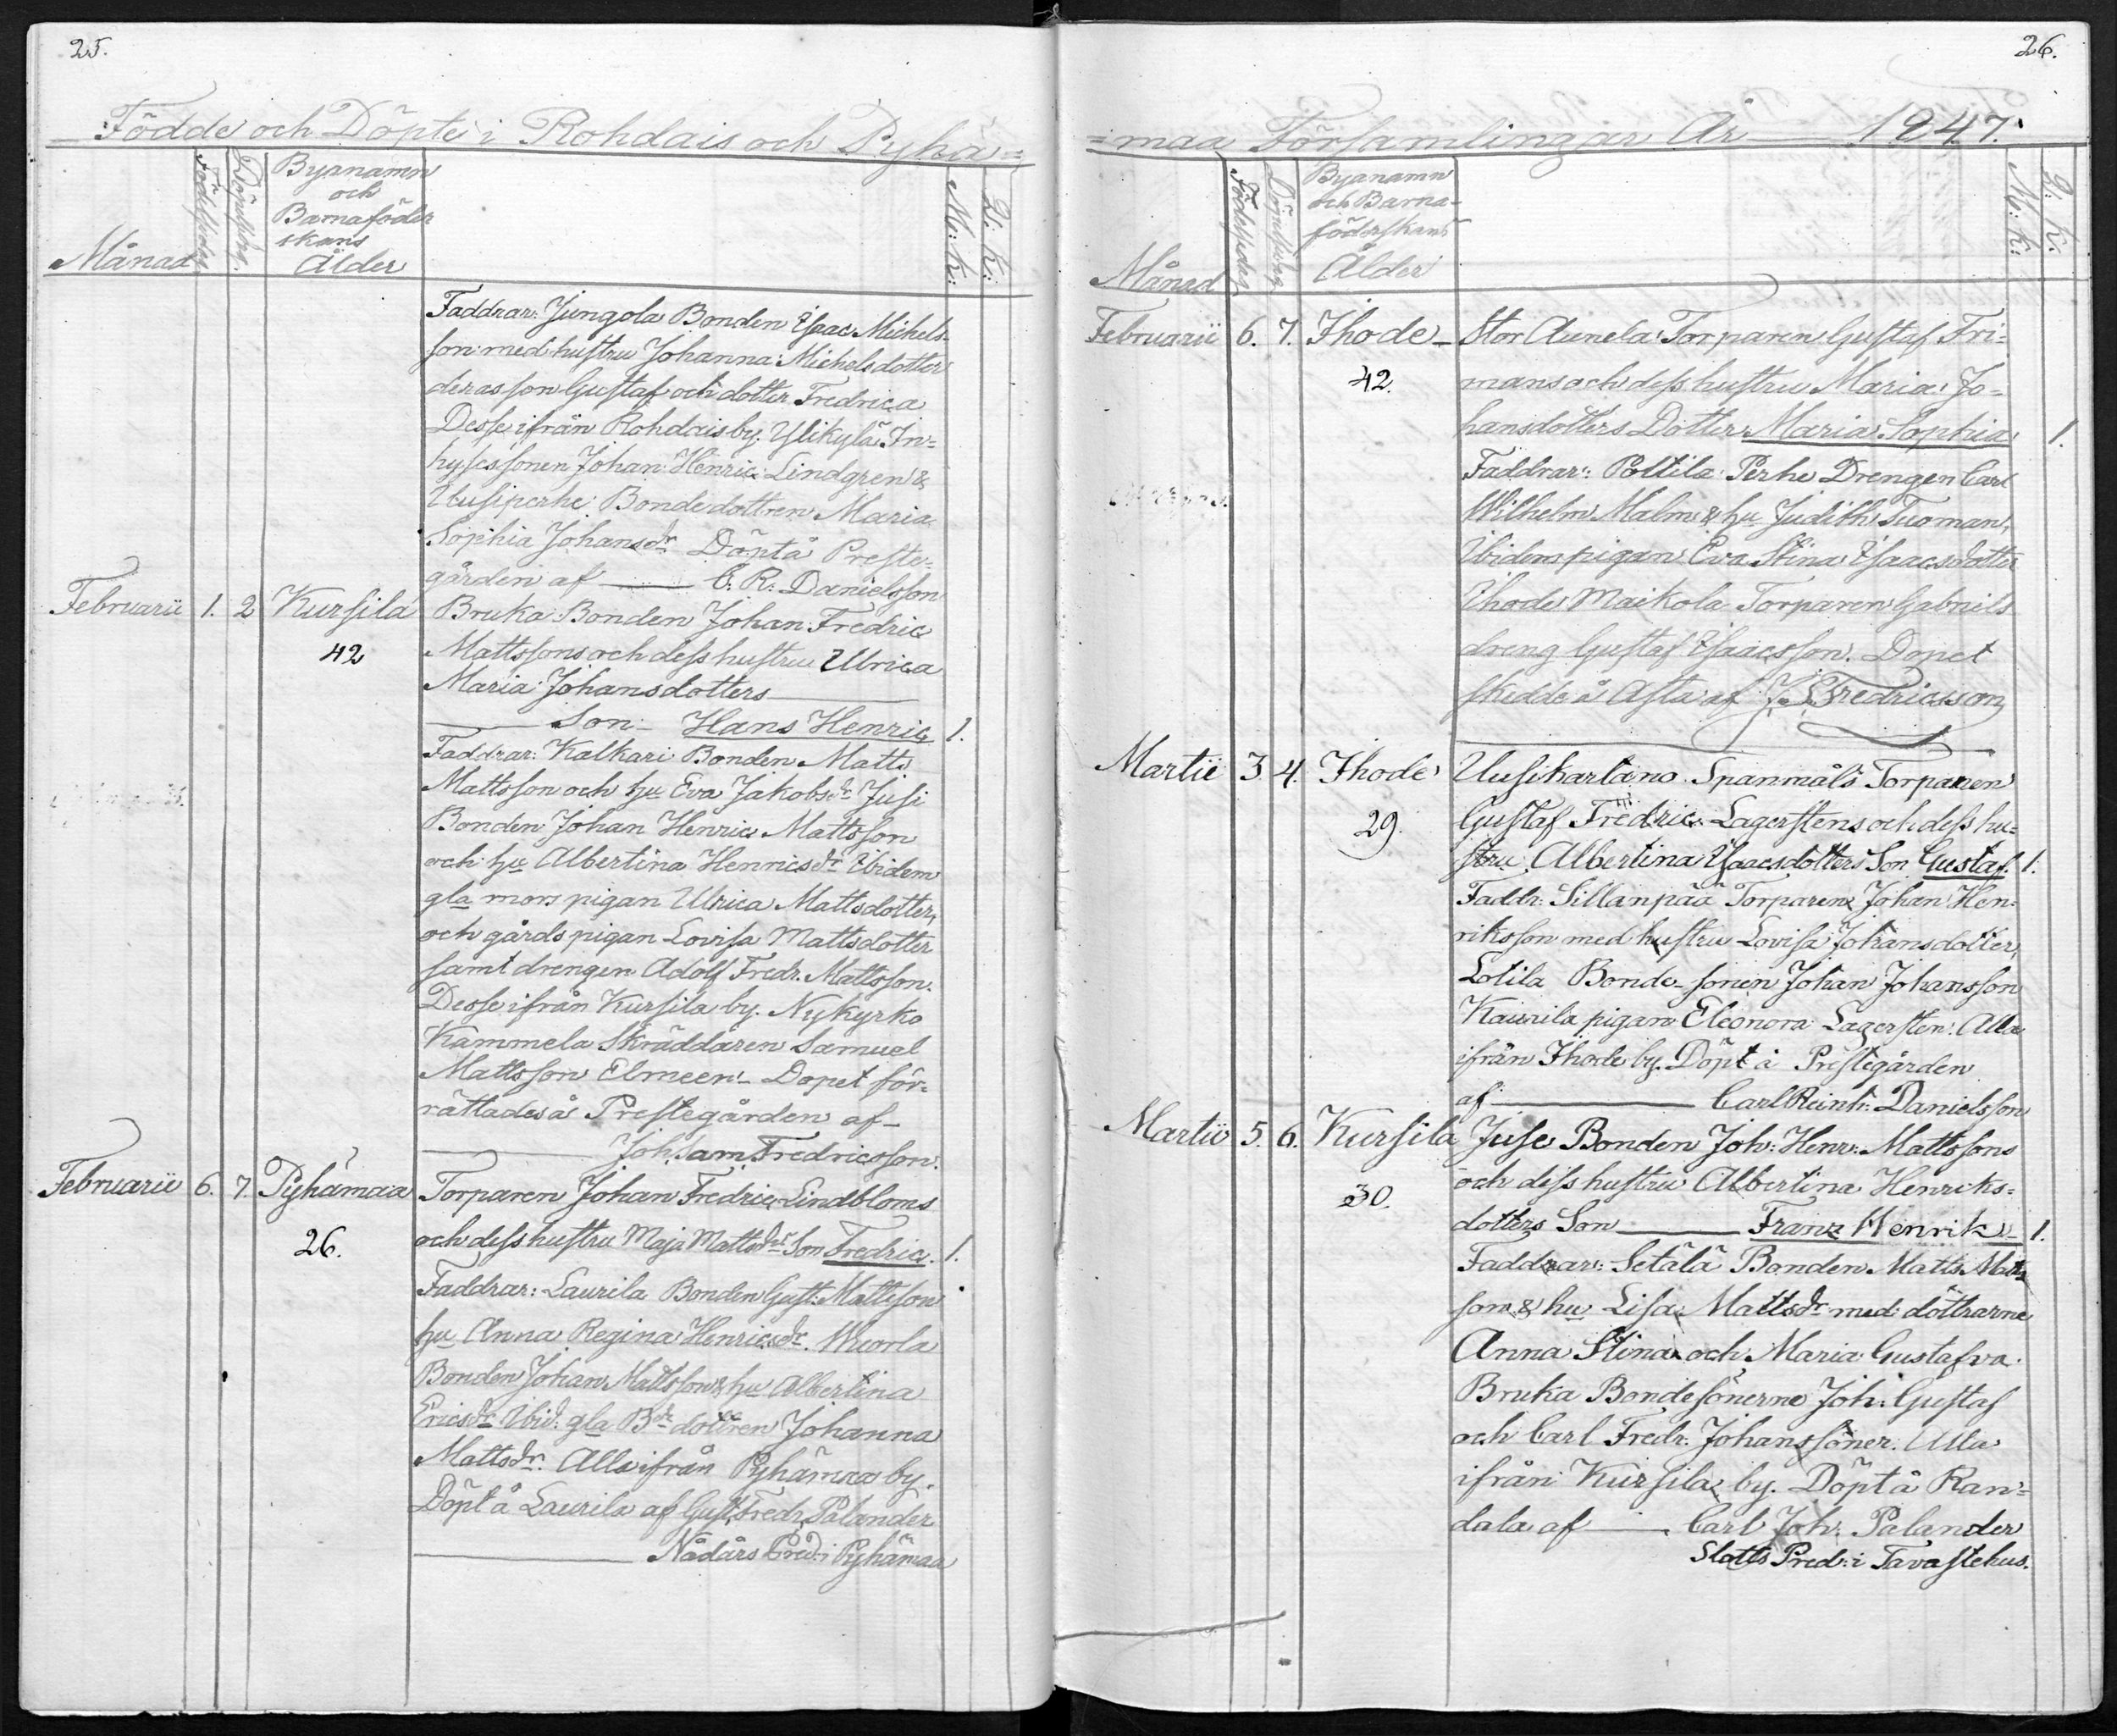 25.
Födde och Döpte i Rohdais och Pyhä=
Månad
Födelsedag
Döpelsdag.
Byanamn
och
Barnaföder
skans
Ålder
M: k:
Q: k:
Faddrar: Jungola Bonden Isaac Michels-
son med hustru Johanna Michelsdotter
deras son Gustaf och dotter Fredrica
Desse ifrån Rohdais by. Ylikylä In=
hysessonen Johan Henric Lindgren &
Uusiperhe Bondedottren Maria
Sophia Johansdr Döpt å Preste-
gården af — C. R. Danielsson
Februarii 1. 2 Kursila Bruka Bonden Johan Fredric
42 Mattssons och dess hustru Ulrica
Maria Johansdotters —
— Son — Hans Henric 1.
Faddrar: Kalkari Bonden Matts
Mattsson och hu Eva Jakobsdr Jusi
Bonden Johan Henric Mattsson
och hu Albertina Henricsdr Ibidem
gla mors pigan Ulrica Mattsdotter,
och gårds pigan Lovisa Mattsdotter
samt drengen Adolf Fredr. Mattsson.
Desse ifrån Kursila by. Nykyrko
Kammela Skräddaren Samuel
Mattsson Elmeen. Dopet för-
rättades å Prestegården af —
— Joh. Sam Fredricsson.
Februarii 6. 7. Pyhämaa Torparen Johan Fredric Lindbloms
26. och dess hustru Maja Mattsdrs Son Fredric. 1.
Faddrar: Laurila Bonden Gust: Mattsson
hu Anna Regina Henricsdr. Wuorla
Bonden Johan Mattsson & hu Albertina
Ericsdr Ibid. gla Bde dottren Johanna
Mattsdr. Alla ifrån Pyhämaa by.
Döpt å Laurila af Gust. Fredr. Palander
— Nådårs Pred: i Pyhämaa
26.
=maa Församlingar År — 1847.
Månad
Födelsedag
Döpelsedag
Byanamn
och Barna-
föderskans
Ålder
M: k:
Q: k:
Februarii 6. 7. Ihode — Stor Aunela Torparen Gustaf Fri=
42. mans och dess hustru Maria Jo-
hansdotters Dotter Maria Sophia 1.
Faddrar: Poltila Perhe Drengen Carl
Wilhelm Malm & hu Judith Tuoman,
Ibidem pigan Eva Stina Isaacsdotter
Ihode Maikola Torparen Gabriels
dreng Gustaf Isaacsson. Dopet
skedde å Asta af J. S. Fredricsson
Martii 3 4. Ihode Uusikartano Spanmåls Torparen
29. Gustaf Fredric Lagerstens och dess hu=
stru Albertina Isaacsdotters Son Gustaf. 1.
Faddr: Sillanpää Torparen Johan Hen-
riksson med hustru Lovisa Johansdotter,
Lotila Bonde-sonen Johan Johansson
Kaurila pigan Eleonora Lagersten. Alla
ifrån Ihode by. Döpt å Prestegården
af — Carl Reinh: Danielsson
Martii 5. 6. Kursila Juse Bonden Joh: Henr: Mattssons
30. och dess hustru Albertina Henriks-
dotters Son — Franz Henrik — 1.
Faddrar: Setälä Bonden Matts Matts
son & hu Lisa Mattsdr med döttrarne
Anna Stina och Maria Gustafva.
Bruka Bondesönerne Joh: Gustaf
och Carl Fredr: Johanssöner. Alla
ifrån Kursila by. Döpt å Ran=
dala af — Carl Joh: Palander
Slotts Pred: i Tavastehus.